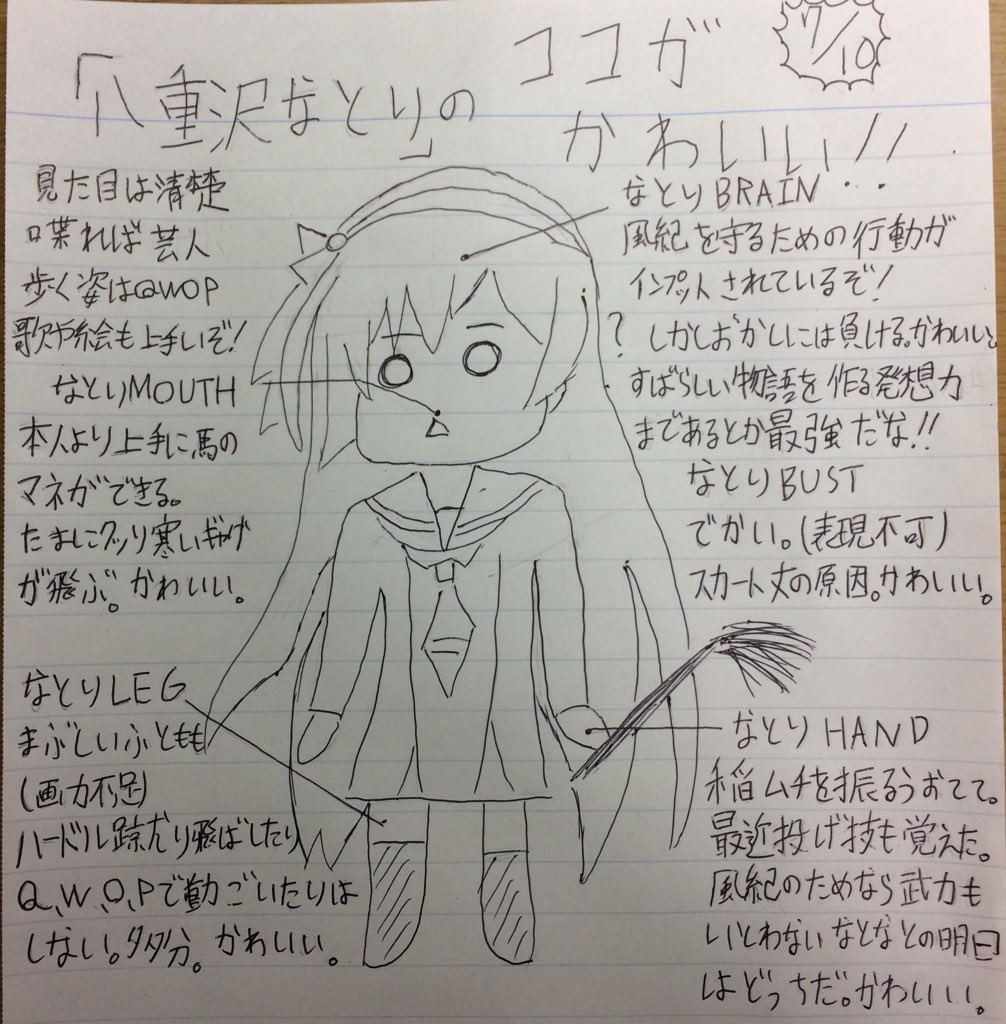 「八重沢なとり」の ココが
かわいい!!
7/10
見た目は清楚
口喋れば芸人
歩く姿は@WOP
歌や絵も上手いぞ!
なとりMOUTH
本人より上手に馬の
マネができる。
たまにクッソ寒いギャグ
が飛ぶ。かわいい。
なとりBRAIN
風紀を守るための行動が
インプットされているぞ!
? しかしおかしには負ける。かわいい。
すばらしい物語を作る発想力
まであるとか最強だな!!
なとりBUST
でかい。(表現不可)
スカート丈の原因。かわいい。
なとりLEG
まぶしいふともも
(画力不足)
ハードル蹴り飛ばしたり
Q、W、O、Pで動ごいたりは
しない。多分。かわいい。
なとりHAND
稲ムチを振るうおてて。
最近投げ技も覚えた。
風紀のためなら武力も
いとわないなとなとの明日
はどっちだ。かわいい。